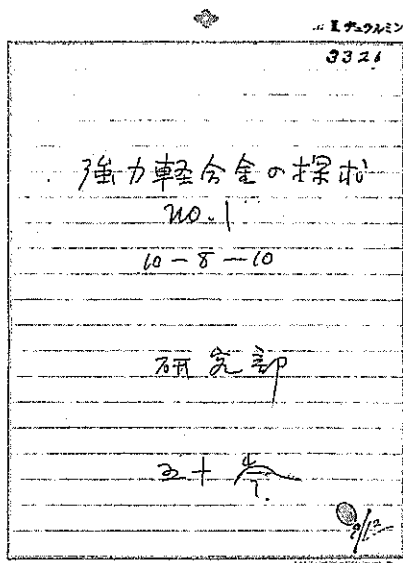 ヂュラルミン
3326
強力軽合金の探求
no.1
10-8-10
研究部
五十
8/12